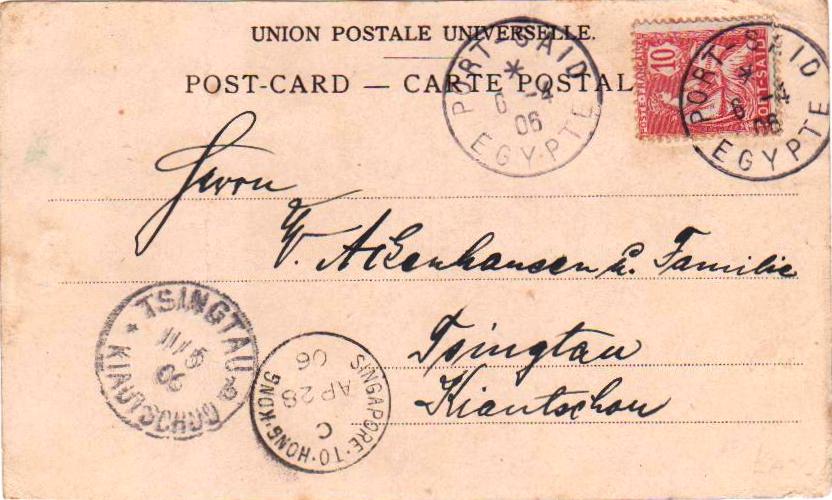 UNION POSTALE UNIVERSELLE.
POST-CARD — CARTE POSTAL
PORT-SAID
6 -4
06
EGYPTE
10
POSTE FRANÇAISE
PORT-SAID
PORT-SAID
6 -4
06
EGYPTE
Herrn
W. Ackenhausen u. Familie
Tsingtau
Kiautschou
TSINGTAU
KIAUTSCHOU
SINGAPORE·TO·HONG·KONG
C
AP 28
06